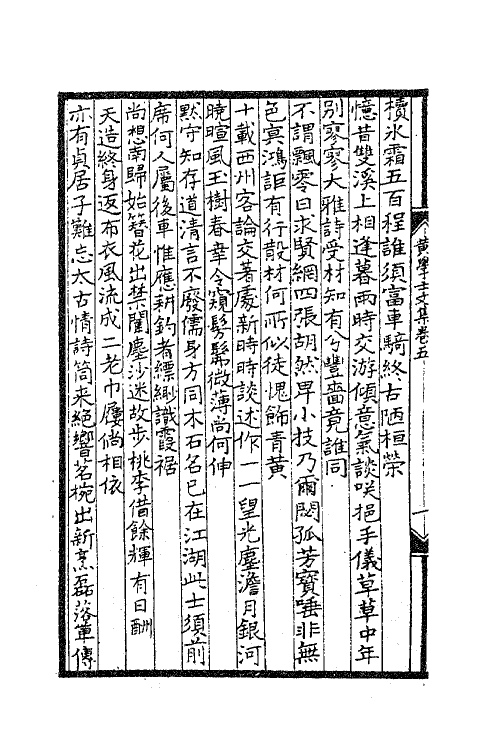 櫝氷霜五百程誰須富車騎終古陋桓榮
憶昔雙溪上相逢暮雨時交游傾意氣談咲挹手儀草草中年
別寥寥大雅詩受材知有分豐嗇竟誰同
不謂飄零日求賢網四張胡然卑小技乃爾閟孤芳寶唾非無
色寘鴻詎有行散材何所似徒愧飾青黄
十載西州客論交著處新時時談述作一一望光塵澹月銀河
曉暄風玉樹春幸令窺髣髴微薄尚何伸
黙守知存道清言不廢儒身方同木石名已在江湖此士須前
席何人屬後車惟應耕釣者縹緲識霞裾
尚想南歸始簪花出禁闈塵沙迷故步桃李借餘輝有日酬
天造終身返布衣風流成二老巾屨倘相依
亦有貞居子難忘太古情詩筒来絶響茗椀出新烹磊落軍傳
黄學士文集卷五